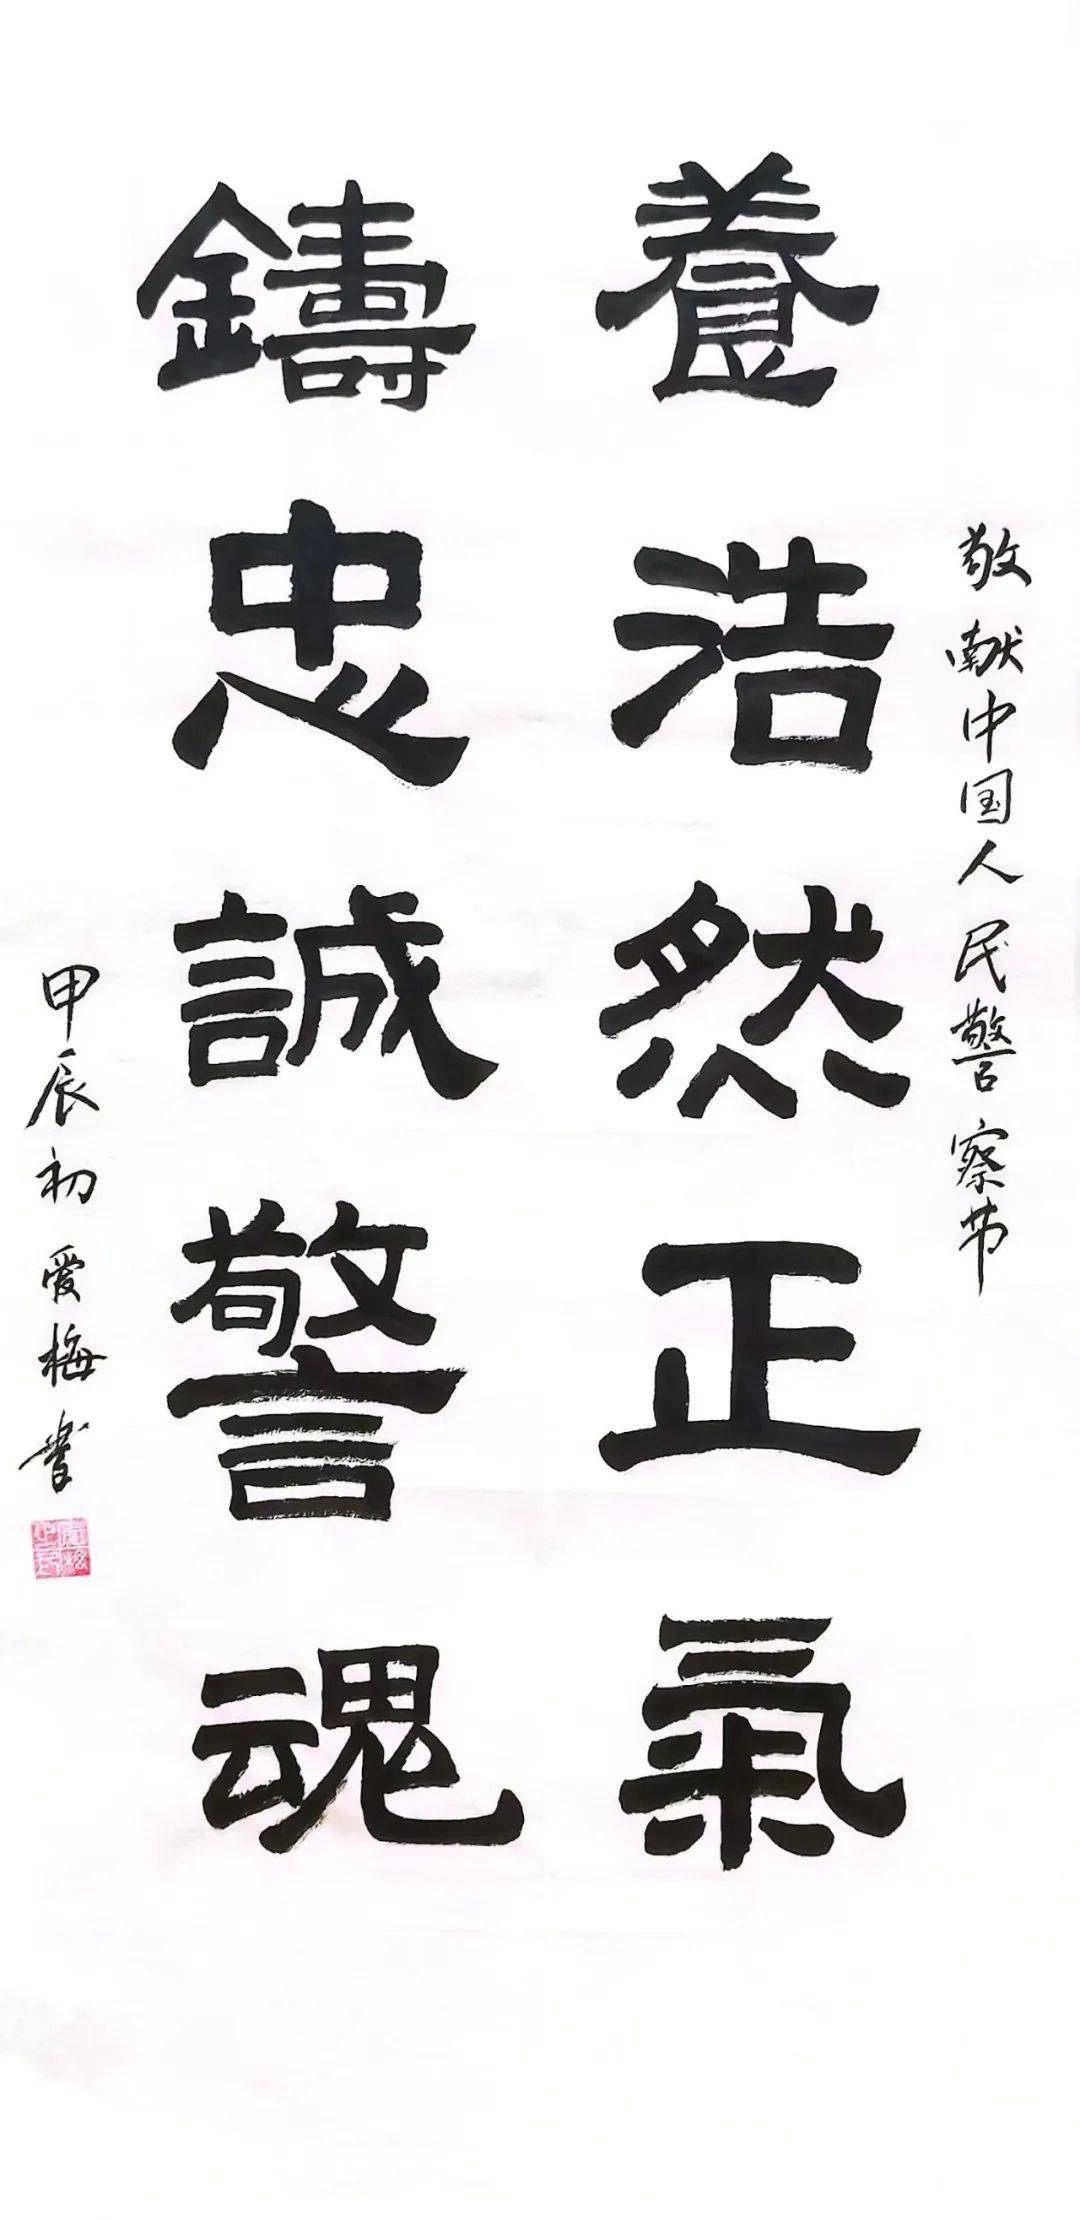 敬献中国人民警察节
養浩然正氣
鑄忠誠警魂
甲辰初爱梅書